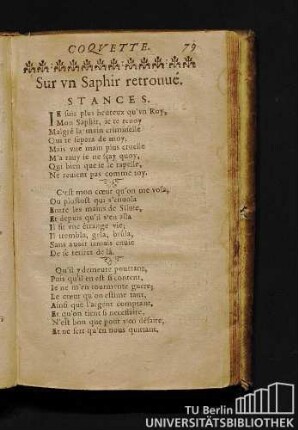 COQVETTE. 79
Sur vn Saphir retrouué.
STANCES.
IE suis plus heureux qu'vn Roy,
Mon Saphir, ie te reuoy
Malgré la main criminelle
Qui te separa de moy,
Mais vne main plus cruelle
M'a rauy ie ne sçay quoy,
Qui bien que ie le rapelle,
Ne reuient pas comme toy.
C'est mon cœur qu'on me vola,
Ou plustost qui s'enuola
Entre les mains de Siluie,
Et depuis qu'il s'en alla
Il fit vne étrange vie;
Il trembla, gela, brûla,
Sans auoir iamais enuie
De se retirer de là.
Qu'il y demeure pourtant,
Puis qu'il en est si content,
Ie ne m'en tourmente guere;
Le cœur qu'on estime tant,
Ainsi que l'argent comptant,
Et qu'on tient si necessaire,
N'est bon que pour s'en défaire,
Et ne sert qu'en nous quittant,
TU Berlin
UNIVERSITÄTSBIBLIOTHEK